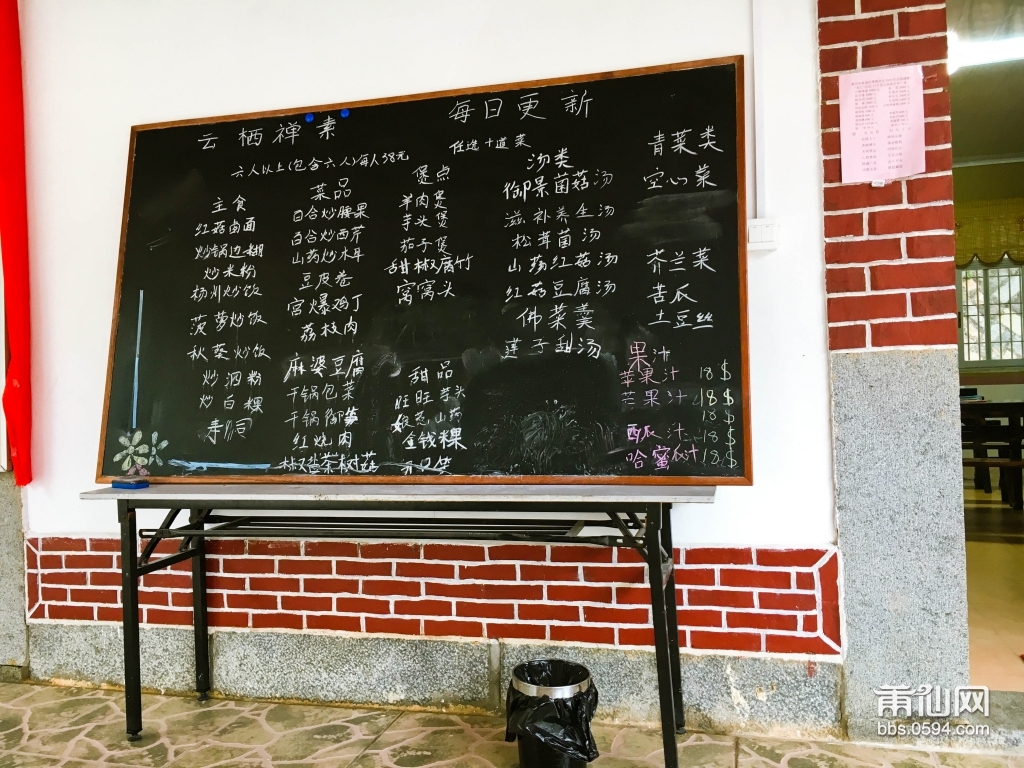 云栖禅素
每日更新
六人以上(包含六人)每人38元
任选十道菜
主食
红菇卤面
炒锅边糊
炒米粉
杨州炒饭
菠萝炒饭
秋葵炒饭
炒泗粉
炒白粿
寿面
菜品
百合炒腰果
百合炒西芹
山药炒木耳
豆皮卷
宫爆鸡丁
荔枝肉
麻婆豆腐
干锅包菜
干锅御笋
红烧肉
椒盐茶树菇
煲点
羊肉煲
芋头煲
茄子煲
甜椒腐竹
窝窝头
甜品
旺旺芋头
山药
金钱粿
汤类
御景菌菇汤
滋补养生汤
松茸菌汤
山药红菇汤
红菇豆腐汤
佛菜羹
莲子甜汤
青菜类
空心菜
芥兰菜
苦瓜
土豆丝
果汁
苹果汁 18$
芒果汁 18$
18$
西瓜汁 18$
哈蜜瓜汁 18$
莆仙网
bbs.0594.com